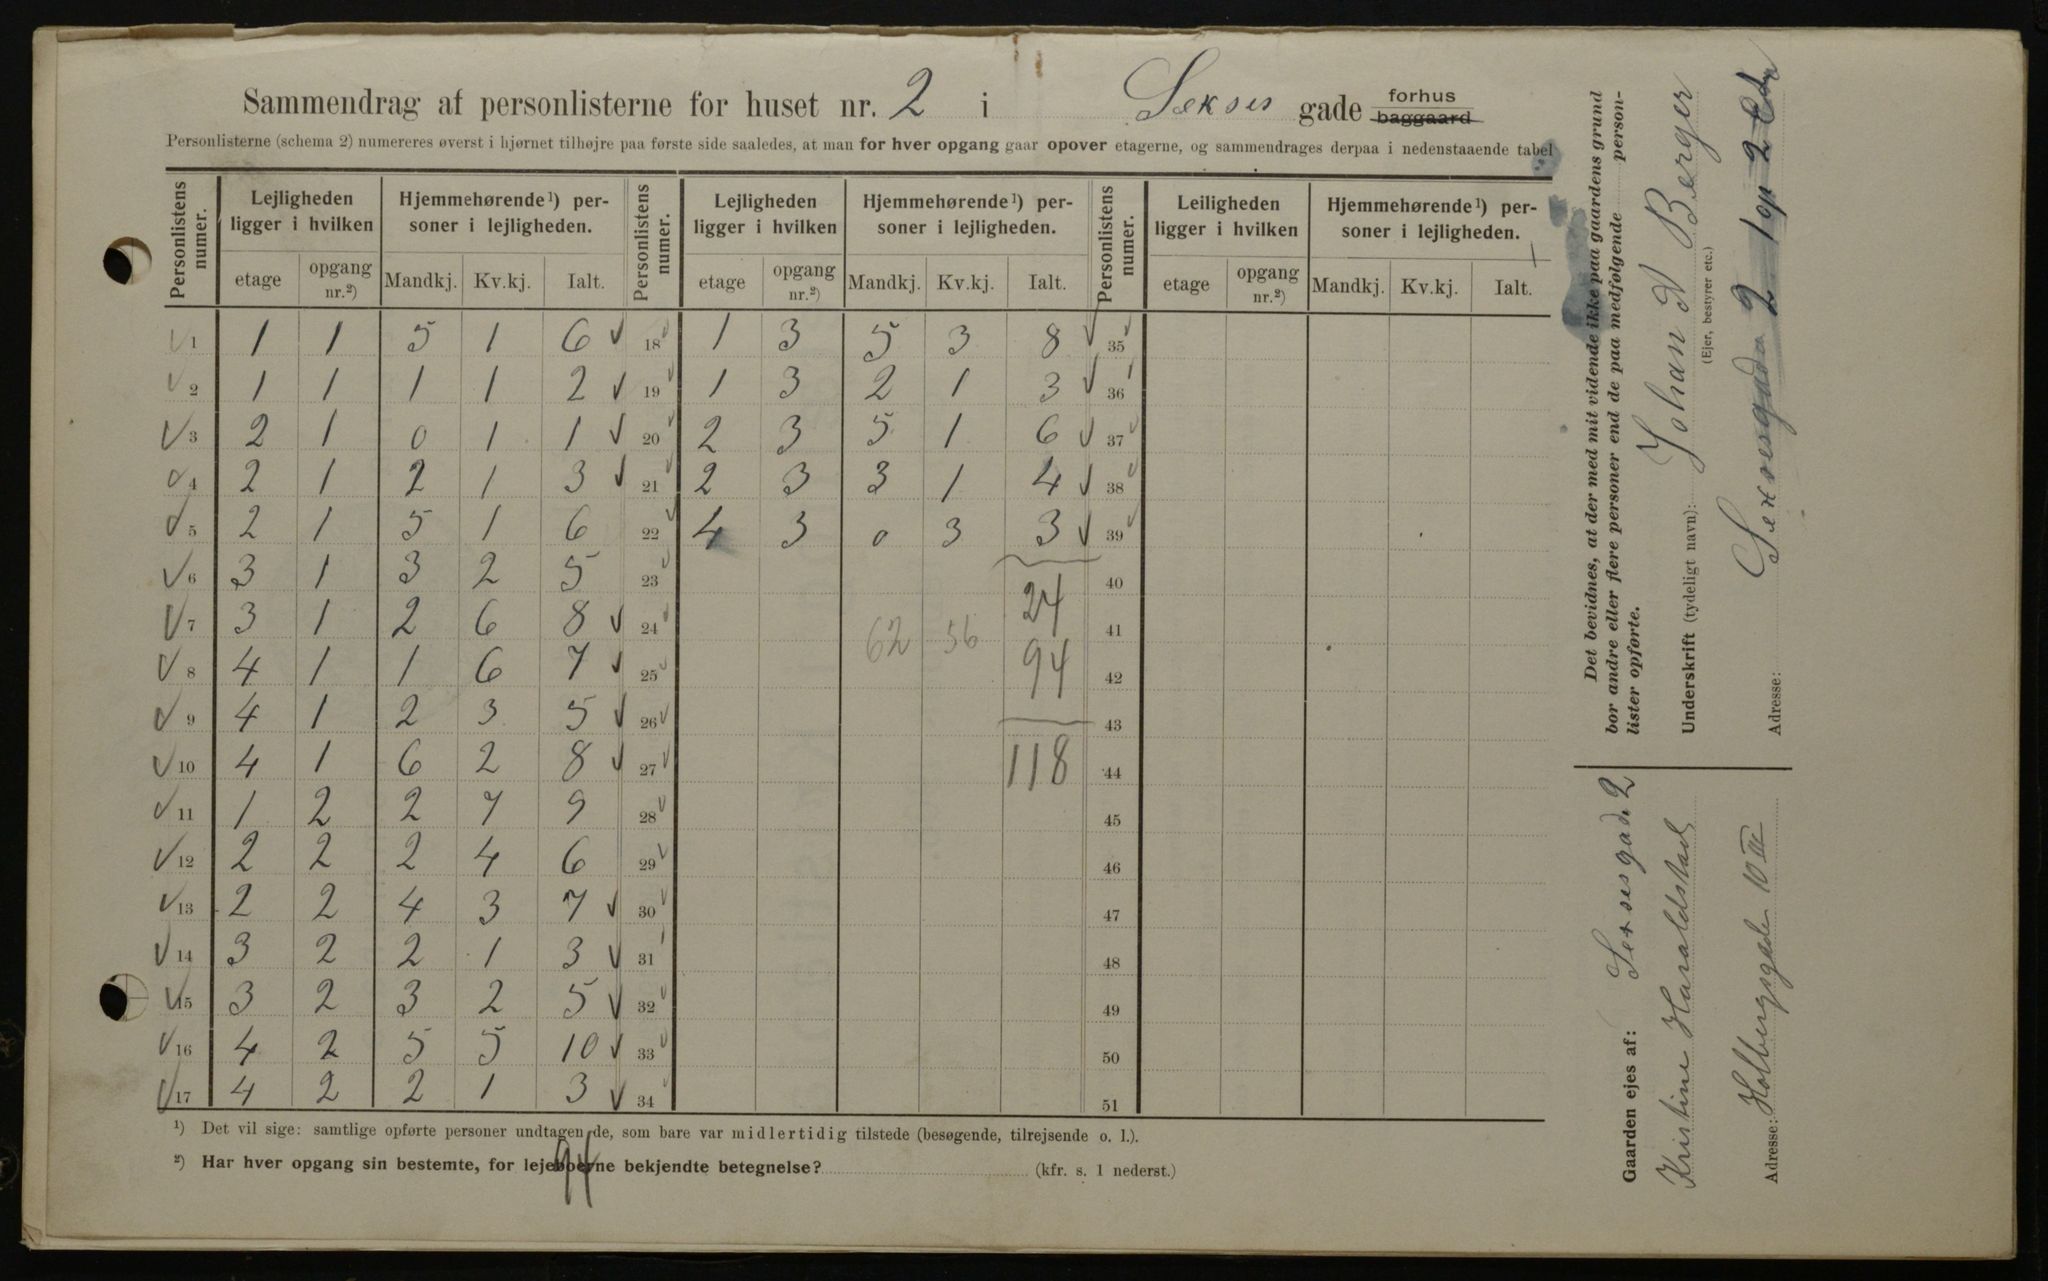 Sammendrag af personlisterne for huset nr. 2 i Sekses gade forhus baggaard
Personlisterne (schema 2) numereres øverst i hjørnet tilhøjre paa første side saaledes, at man for hver opgang gaar opover etagerne, og sammendrages derpaa i nedenstaaende tabel
Personlistens numer. Lejligheden ligger i hvilken Hjemmehørende¹) personer i lejligheden. Personlistens numer. Lejligheden ligger i hvilken Hjemmehørende¹) personer i lejligheden. Personlistens numer. Leiligheden ligger i hvilken Hjemmehørende¹) personer i lejligheden.
etage opgang nr.²) Mandkj. Kv.kj. Ialt. etage opgang nr.²) Mandkj. Kv.kj. Ialt. etage opgang nr.²) Mandkj. Kv.kj. Ialt.
1 1 1 5 1 6 18 1 3 5 3 8 35
2 1 1 1 1 2 19 1 3 2 1 3 36
3 2 1 0 1 1 20 2 3 5 1 6 37
4 2 1 2 1 3 21 2 3 3 1 4 38
5 2 1 5 1 6 22 4 3 0 3 3 39
6 3 1 3 2 5 23 40
7 3 1 2 6 8 24 24 41
8 4 1 1 6 7 25 62 56 94 42
9 4 1 2 3 5 26 43
10 4 1 6 2 8 27 118 44
11 1 2 2 7 9 28 45
12 2 2 2 4 6 29 46
13 2 2 4 3 7 30 47
14 3 2 2 1 3 31 48
15 3 2 3 2 5 32 49
16 4 2 5 5 10 33 50
17 4 2 2 1 3 34 51
¹) Det vil sige: samtlige opførte personer undtagen de, som bare var midlertidig tilstede (besøgende, tilrejsende o. l.).
²) Har hver opgang sin bestemte, for lejeboerne bekjendte betegnelse? (kfr. s. 1 nederst.)
94
Det bevidnes, at der med mit vidende ikke paa gaardens grund
bor andre eller flere personer end de paa medfølgende person-
lister opførte.
Underskrift (tydeligt navn): Johan A Berger
(Ejer, bestyrer etc.)
Adresse: Sexsesgada 2 1 op 2
Gaarden ejes af: Sexsesgada 2
Kristine Haraldstad
Adresse: Holbergsgade 10 III